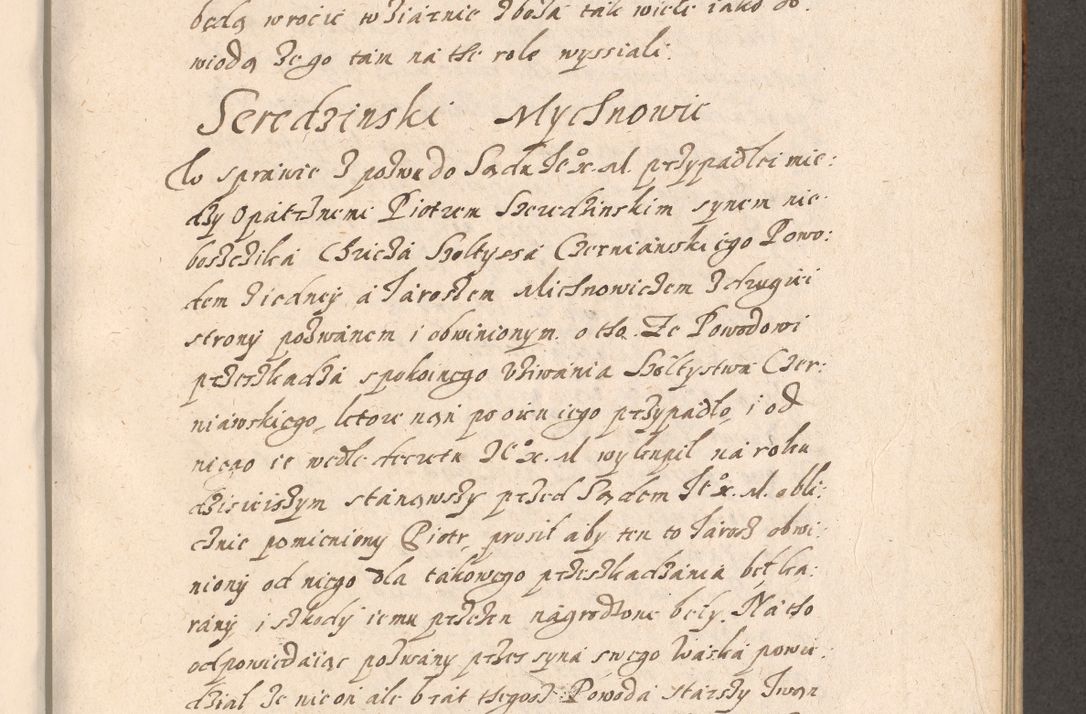 będą wrocic w Jiaznie zboza tak wiele iako do:
wiodą ze go tam na the role wyssiali:
Seredzinski Mychnowic
W sprawie z poźwu do Sądu Je° x. M. przypadłei mie:
dzy Opatrznemi Piotrem Szeredzinskim synem nie
boszczika Chricza Szołtyssa Czerniawskiego Powo:
dem z iedney a Jaroszem Michnowiczem z drugiei
strony pozwanem i obwinionym. o tho. Ze Powodowi
przeszkadza spokoinego vziwania Szołtystwa Czer:
niawskiego, ktore nąn po oicu iego przypadło, i od
niego ie wedle decretu Je° x. M wykupil na roku
dzisieiszym stanąwszy przed Sądem Je° x. M. obli:
cznie pomieniony Piotr, prosił aby ten to Jarosz obwi:
niony od niego dla takowego przeszkadzania beł ka:
rany i szkody iemu przezen nagrodzone beły. Na tho
odpowiedaiąc pozwany przez syna swego Waska powie:
dzial ze nie on ale brat thegosz Powoda starszy Iwan